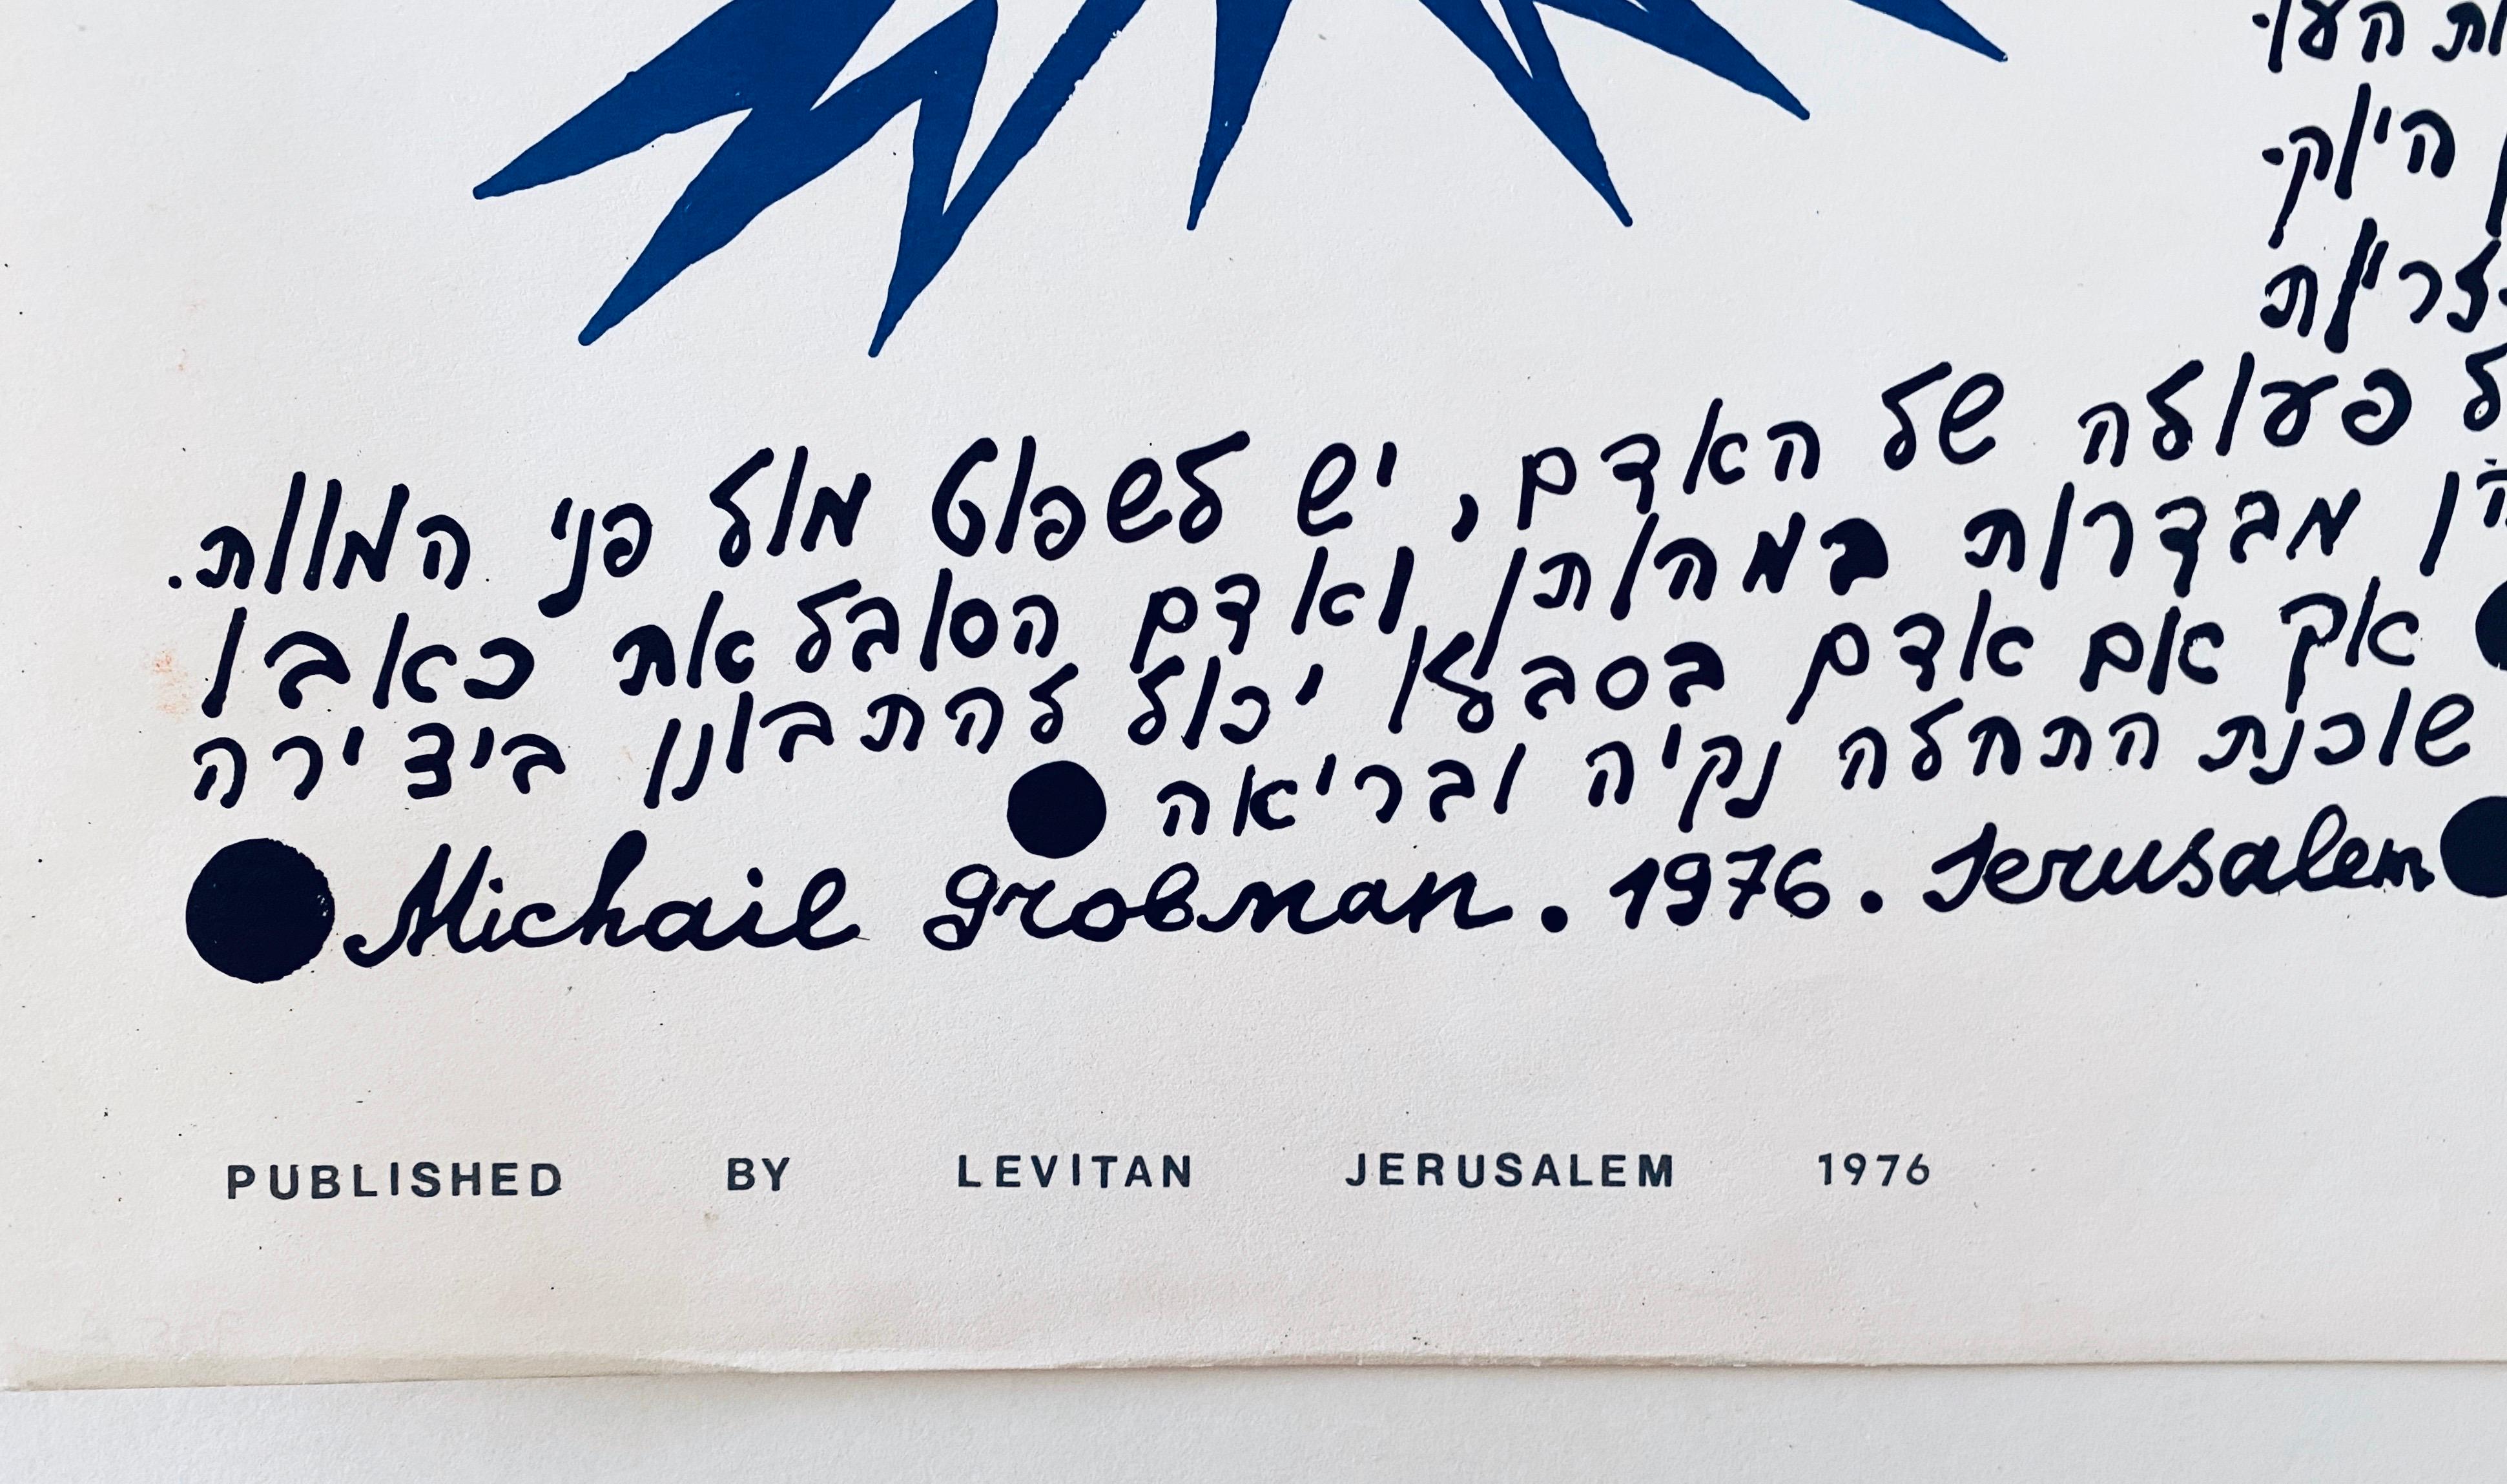 העו-
היוק-
פעולה של האדם, יש לשפוט מול פני המוות.
מבדרות במהותן ואדם הסובל את כאבו
● אך אם אדם בסבלו יכול להתבונן ביצירה
שוכנת התחלה נקיה ובריאה ●
● Michail Grobman. 1976. Jerusalem ●
PUBLISHED BY LEVITAN JERUSALEM 1976